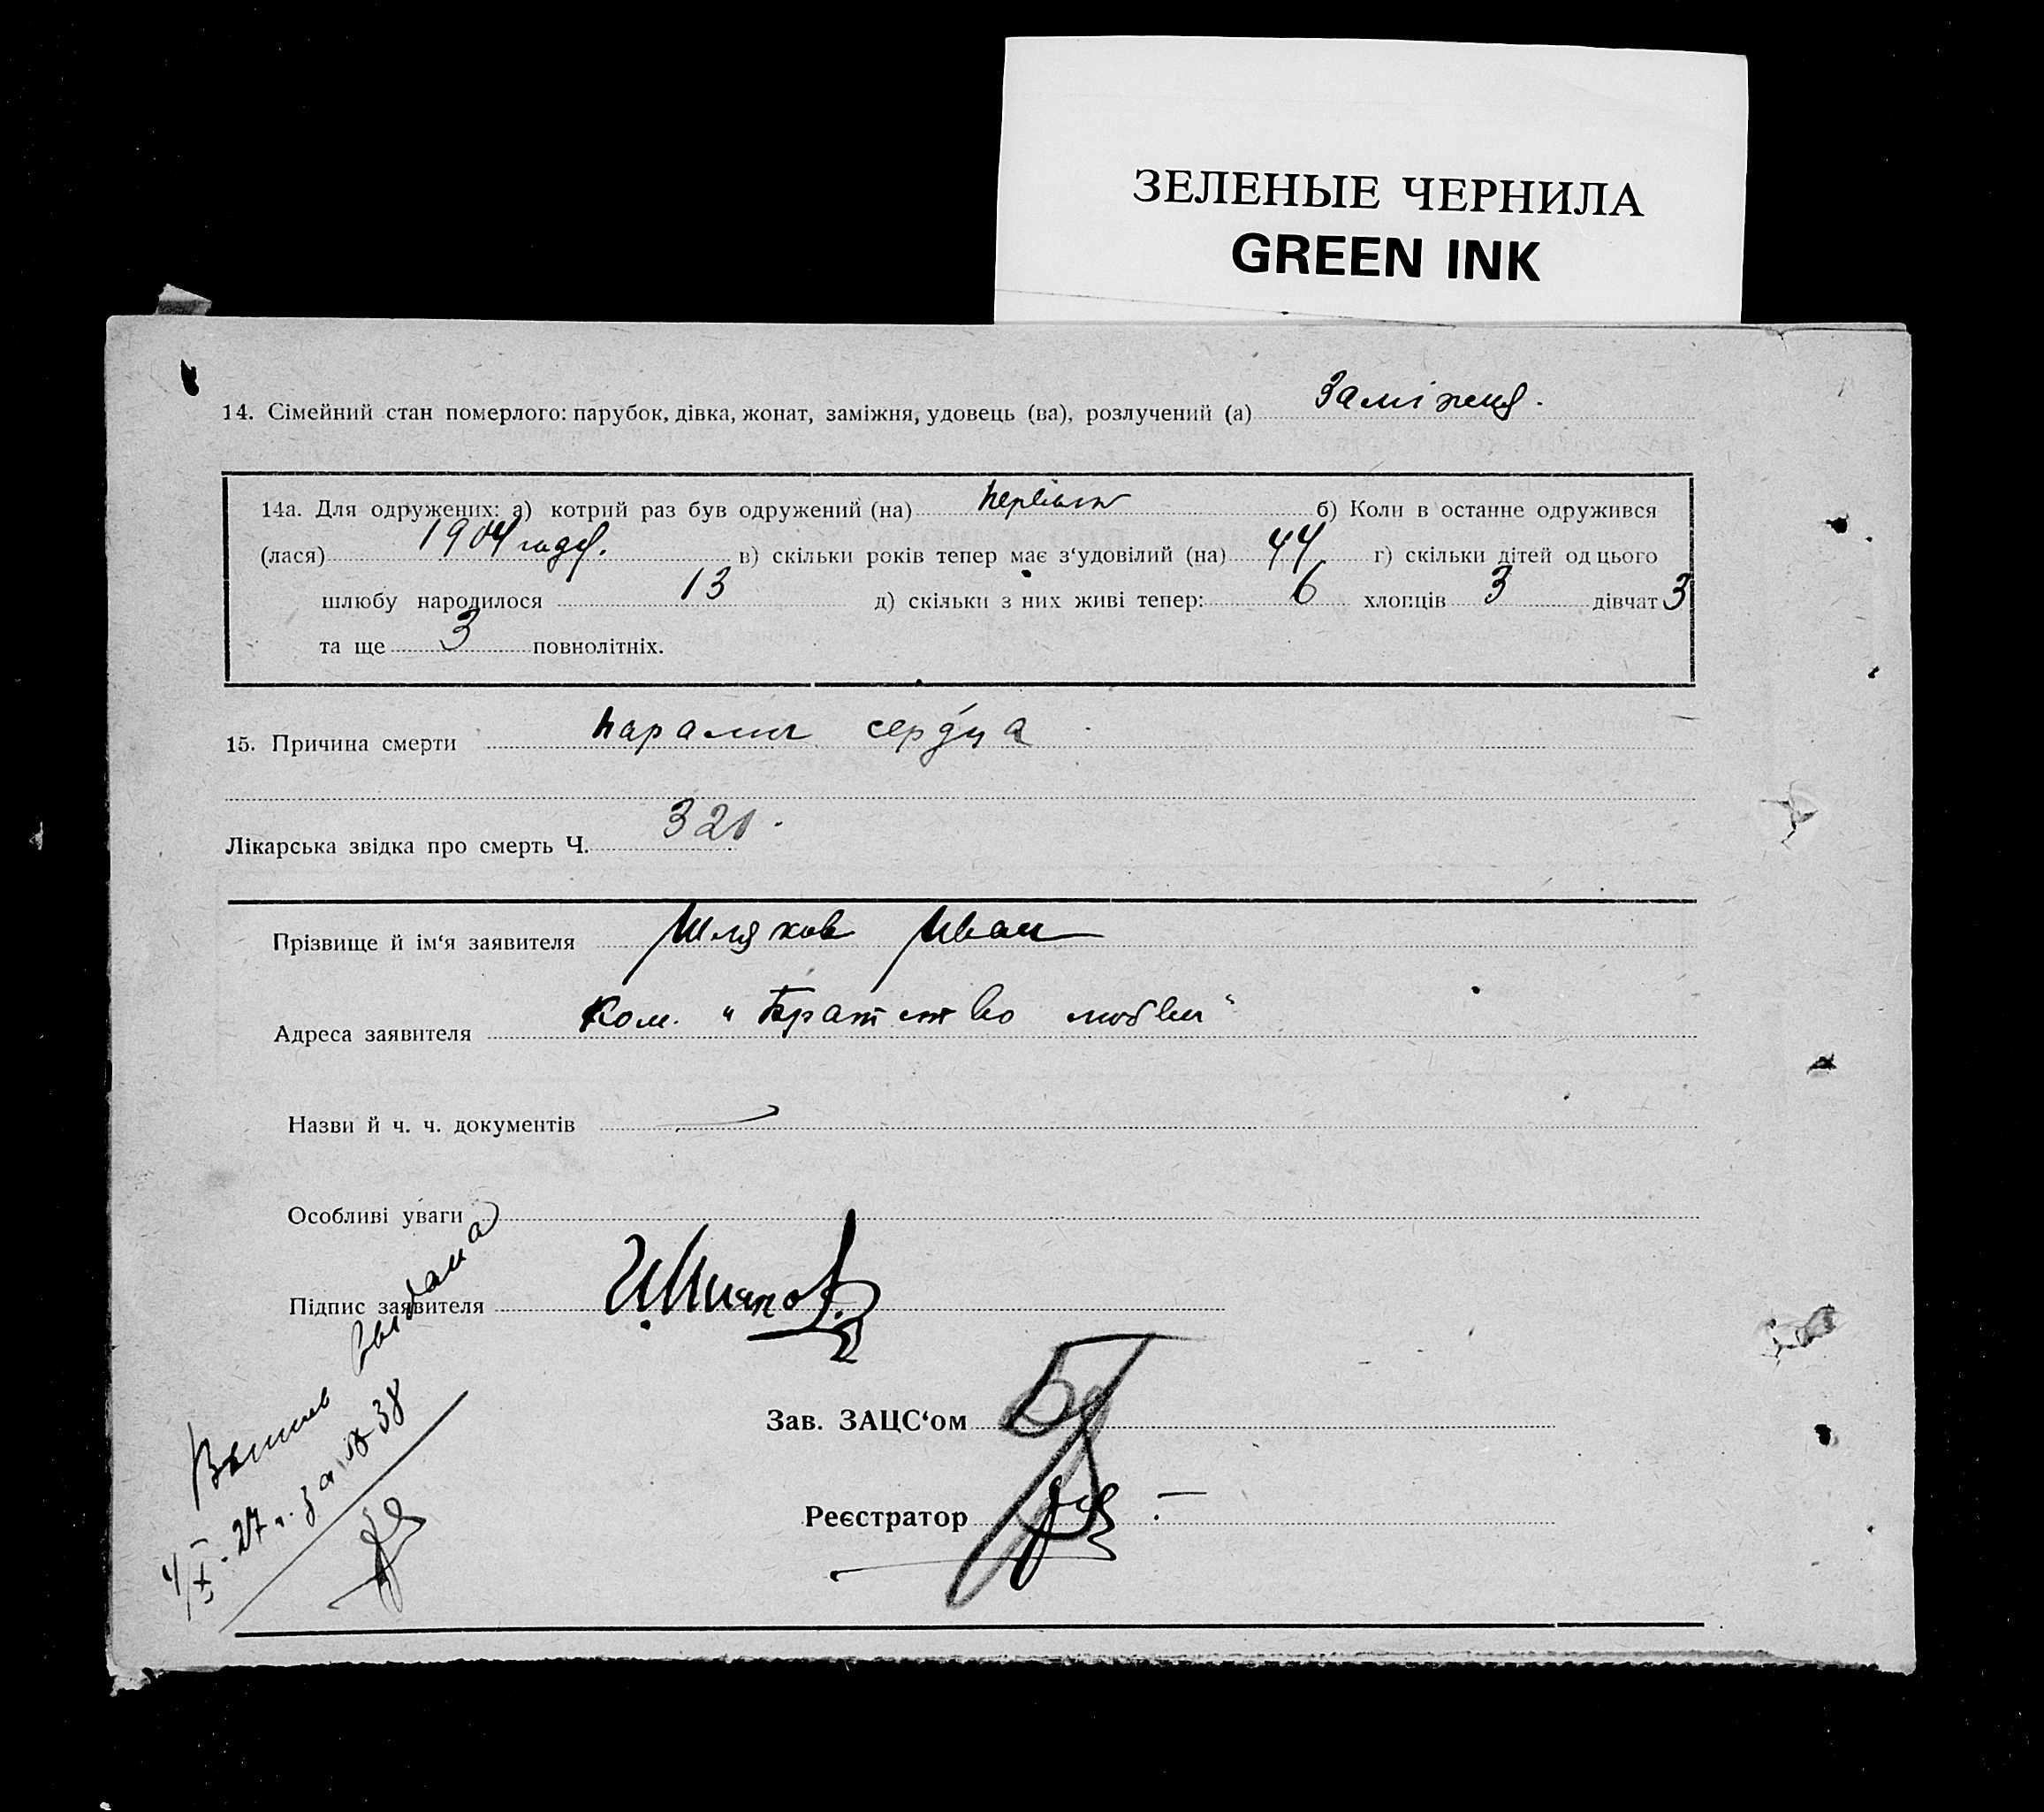 ЗЕЛЕНЫЕ ЧЕРНИЛА
GREEN INK
14. Сімейний стан померлого: парубок, дівка, жонат, заміжня, удовець (ва), розлучений (а) Заміжня.
14а. Для одружених: а) котрий раз був одружений (на) б) Коли в останнє одружився
(лася) 1904 года. в) скільки років тепер має з‘удовілий (на) 44 г) скільки дітей од цього
шлюбу народилося 13 д) скільки з них живі тепер: 6 хлопців 3 дівчат 3
та ще 3 повнолітніх.
15. Причина смерти паралич сердца
Лікарська звідка про смерть Ч. 320.
Прізвище й ім‘я заявителя Шляхов Иван
Адреса заявителя Ком. „Братство любви“
Назви й ч. ч. документів
Особливі уваги
Підпис заявителя
Зав. ЗАЦС‘ом
Реєстратор
Выпись выдана
4/X-27 г. за № 38